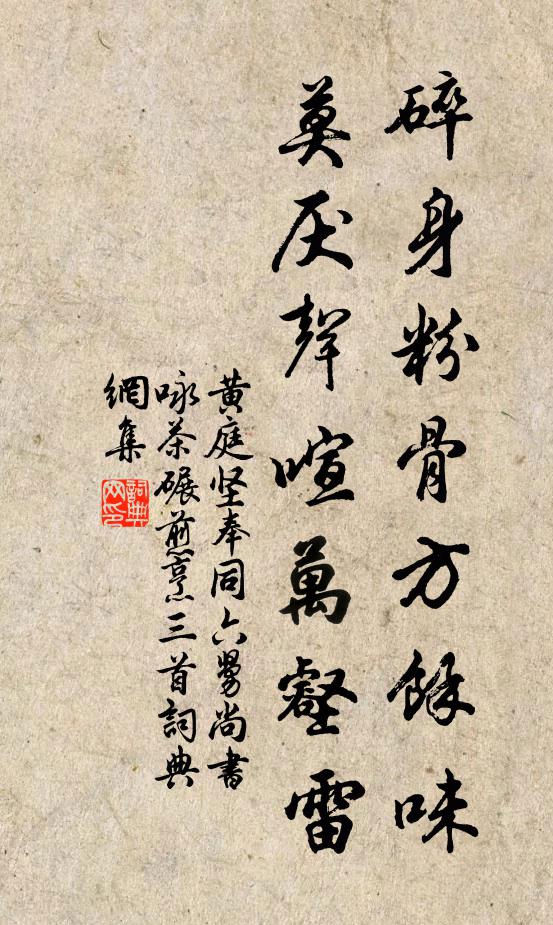 碎身粉骨方餘味
莫厌聲喧萬壑雷
黄庭坚奉同六舅尚書
咏茶碾煎烹三首詞典
網集
詞典网印